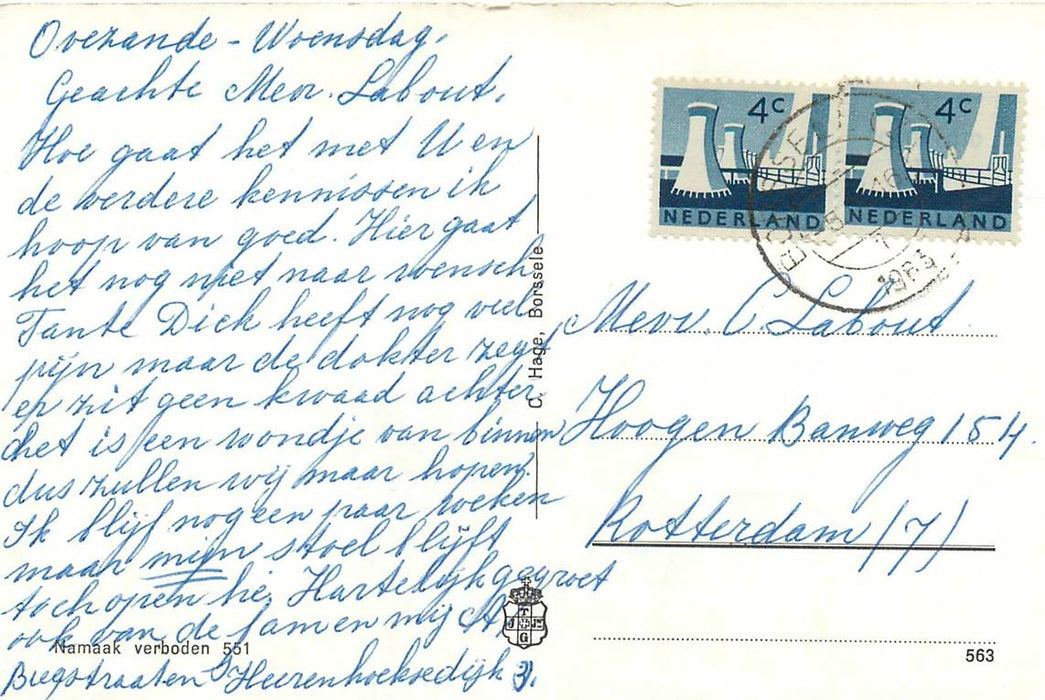 Ovezande - Woensdag.
Geachte Mevr. Labout.
Hoe gaat het met U en
de verdere kennissen ik
hoop van goed. Hier gaat
het nog niet naar wensch
Tante Dick heeft nog veel
pijn maar de dokter zegt
er zit geen kwaad achter.
het is een wondje van binnen
dus zullen wij maar hopen.
Ik blijf nog een paar weken
maar mijn stoel blijft
toch open hie. Hartelijk gegroet
ook van de fam en mij
Namaak verboden 551
Heerenhoeksedijk 3.
C. Hage, Borssele
4c
NEDERLAND
4c
NEDERLAND
1963
Mevr. C Labout
Hoogen Banweg 154.
Rotterdam (7)
563